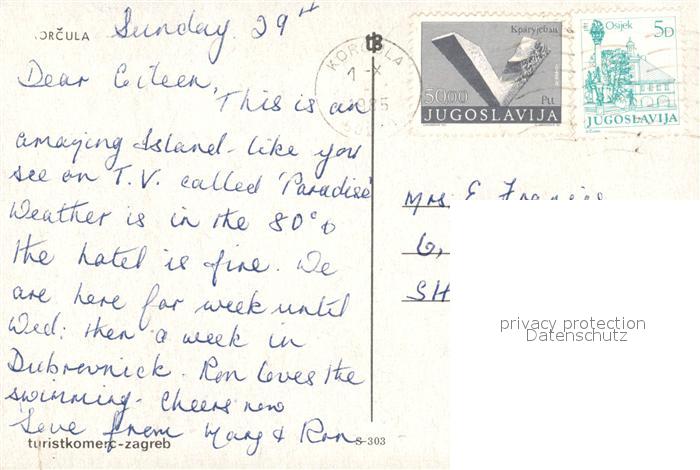 ORČULA
Sunday 29th
Dear Eileen,
This is an
amazing Island - like you
see on T.V. called 'Paradise'
Weather is in the 80°s
the hotel is fine. We
are here for week until
Wed: then a week in
Dubrovnick. Ron loves the
swimming - Cheers now
Love from Marg & Ron
turistkomerc-zagreb
S-303
KORČULA
1-X
1985
Крагујевац
5000
Ptt
JUGOSLAVIJA
Osijek
5D
JUGOSLAVIJA
Mrs E Francis
6,
SH
privacy protection
Datenschutz